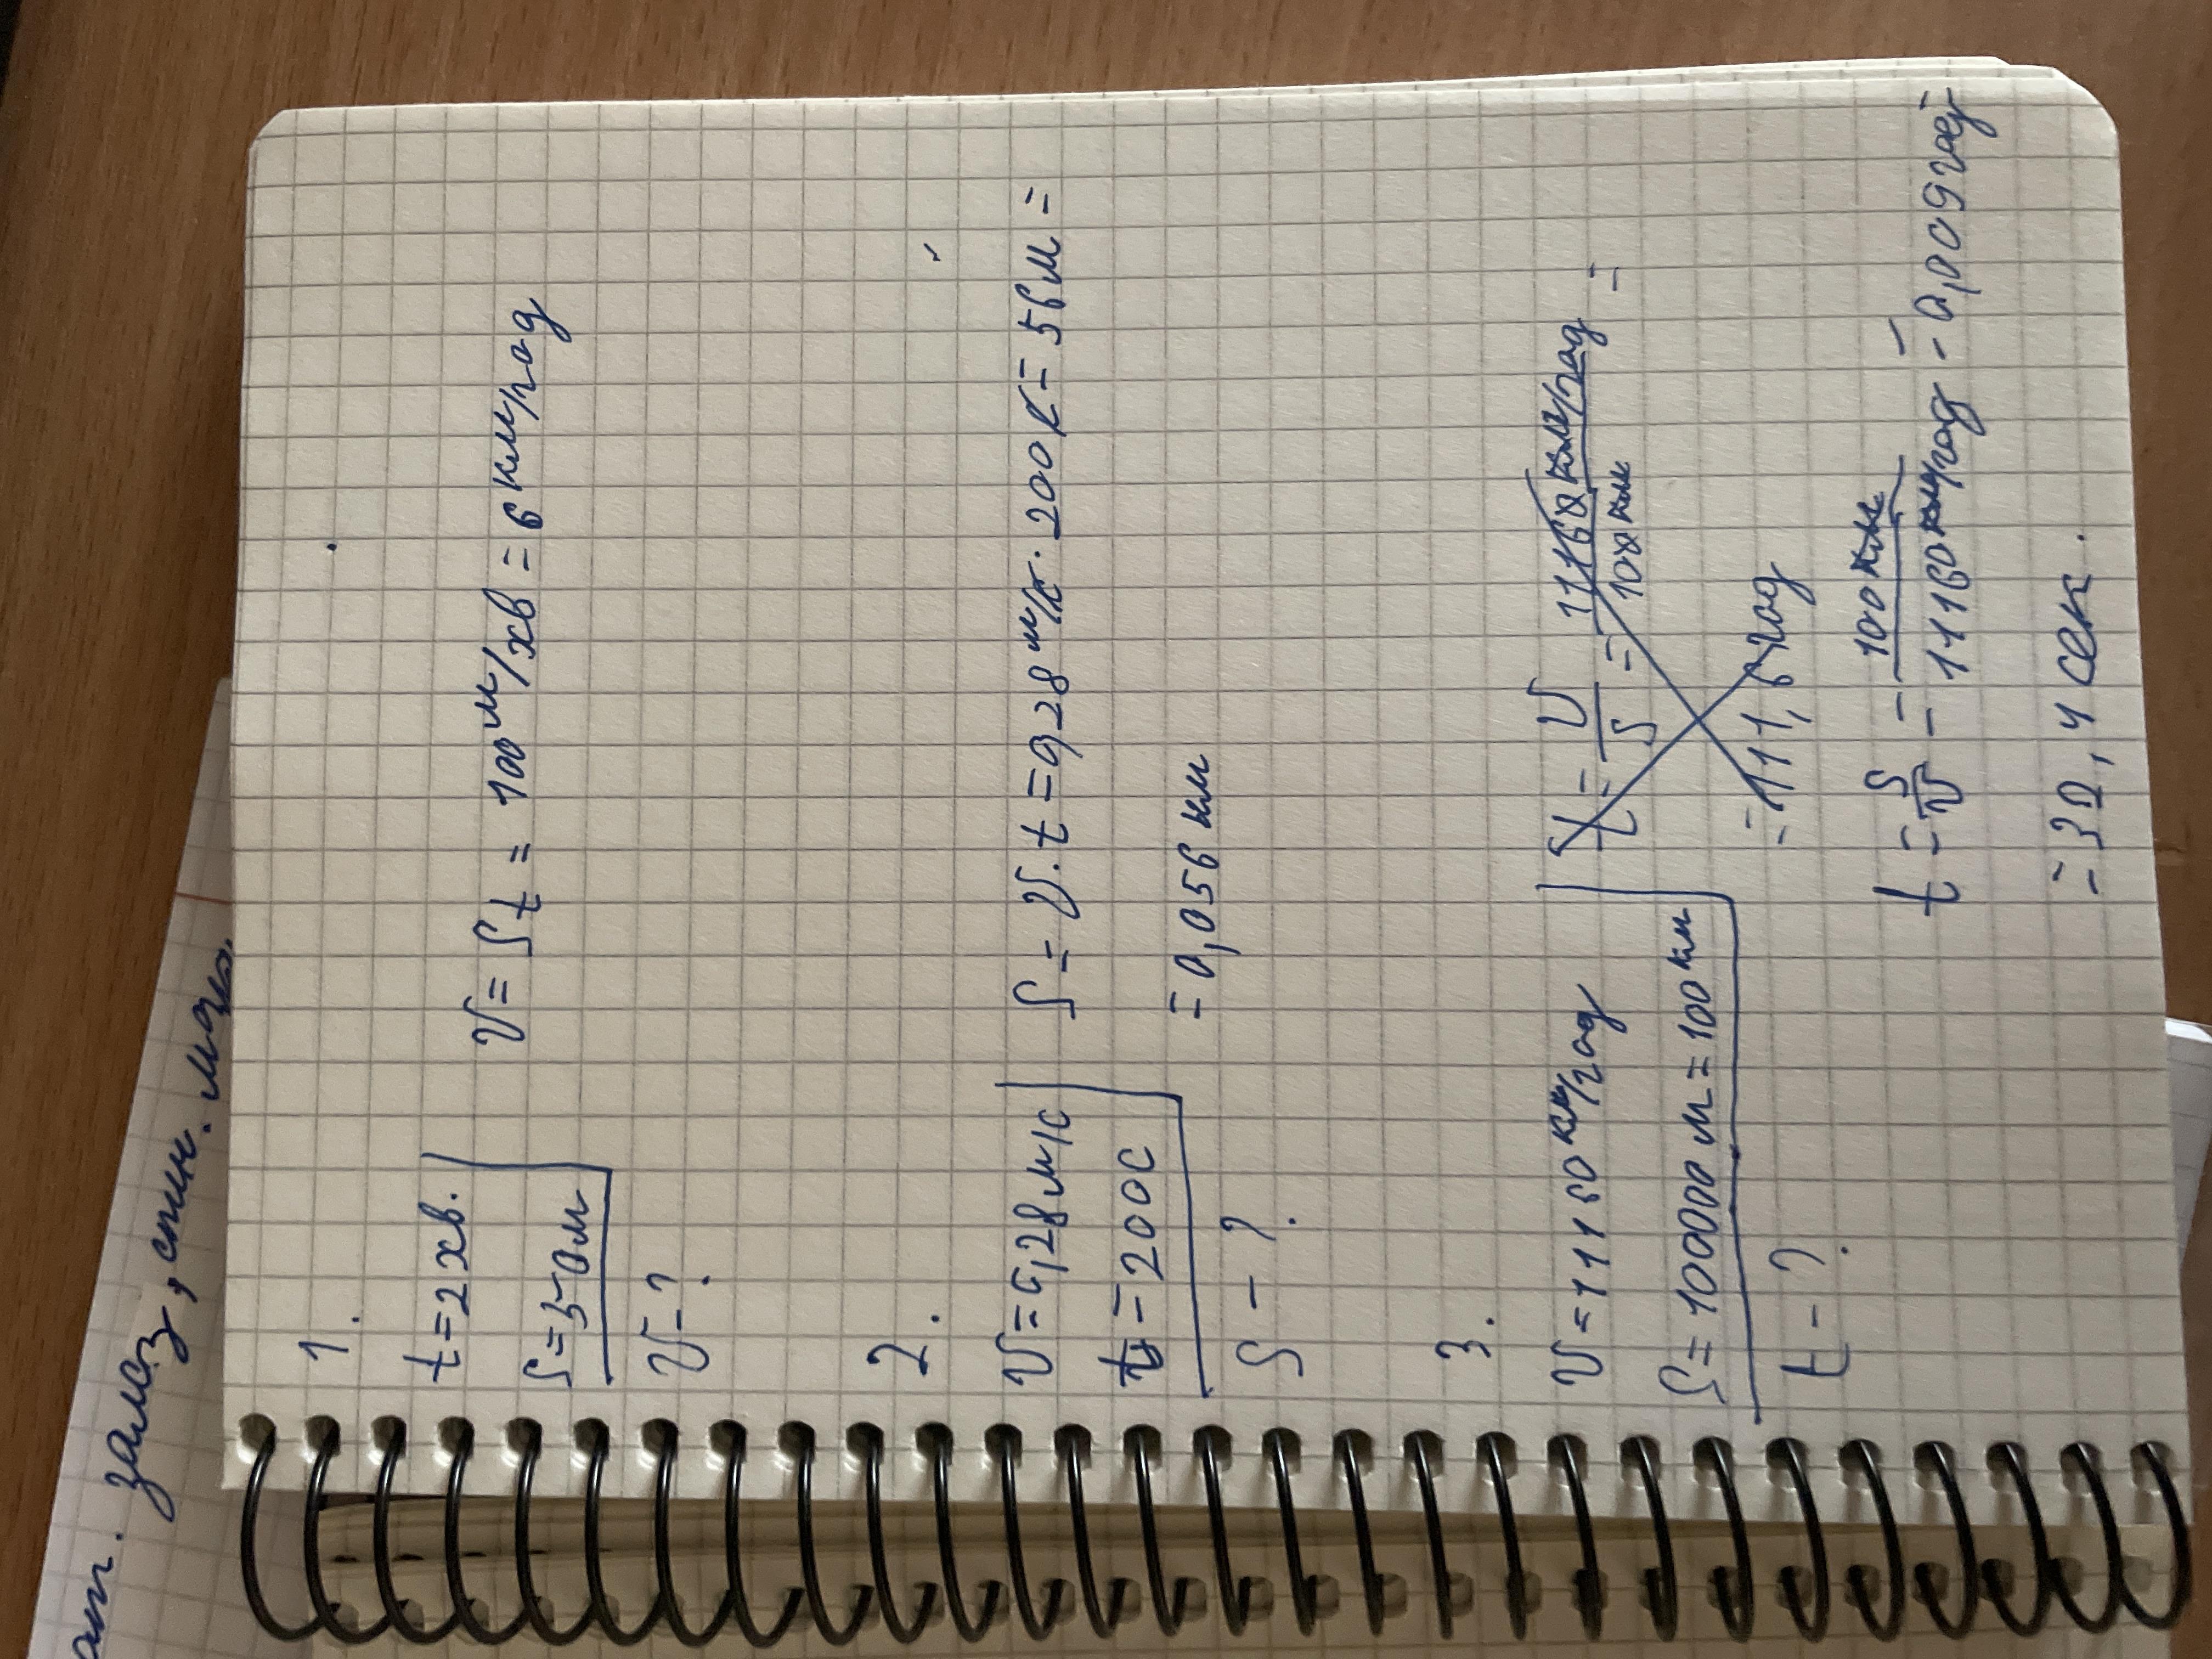 ат. залоз, спин. мозг
1.
t = 2 хв.
S = 50м
V - ?
V = S/t = 100 м/хв = 6 км/год
2.
V = 0,28 м/с
t = 200 с
S - ?
S = V · t = 0,28 м/с · 200 с = 56 м =
= 0,056 км
3.
V = 11160 км/год
S = 100000 м = 100 км
t - ?
t = V/S = 11160 км/год / 100 км =
= 111,6 год
t = S/V = 100 км / 11160 км/год = 0,009 год
= 32,4 сек.